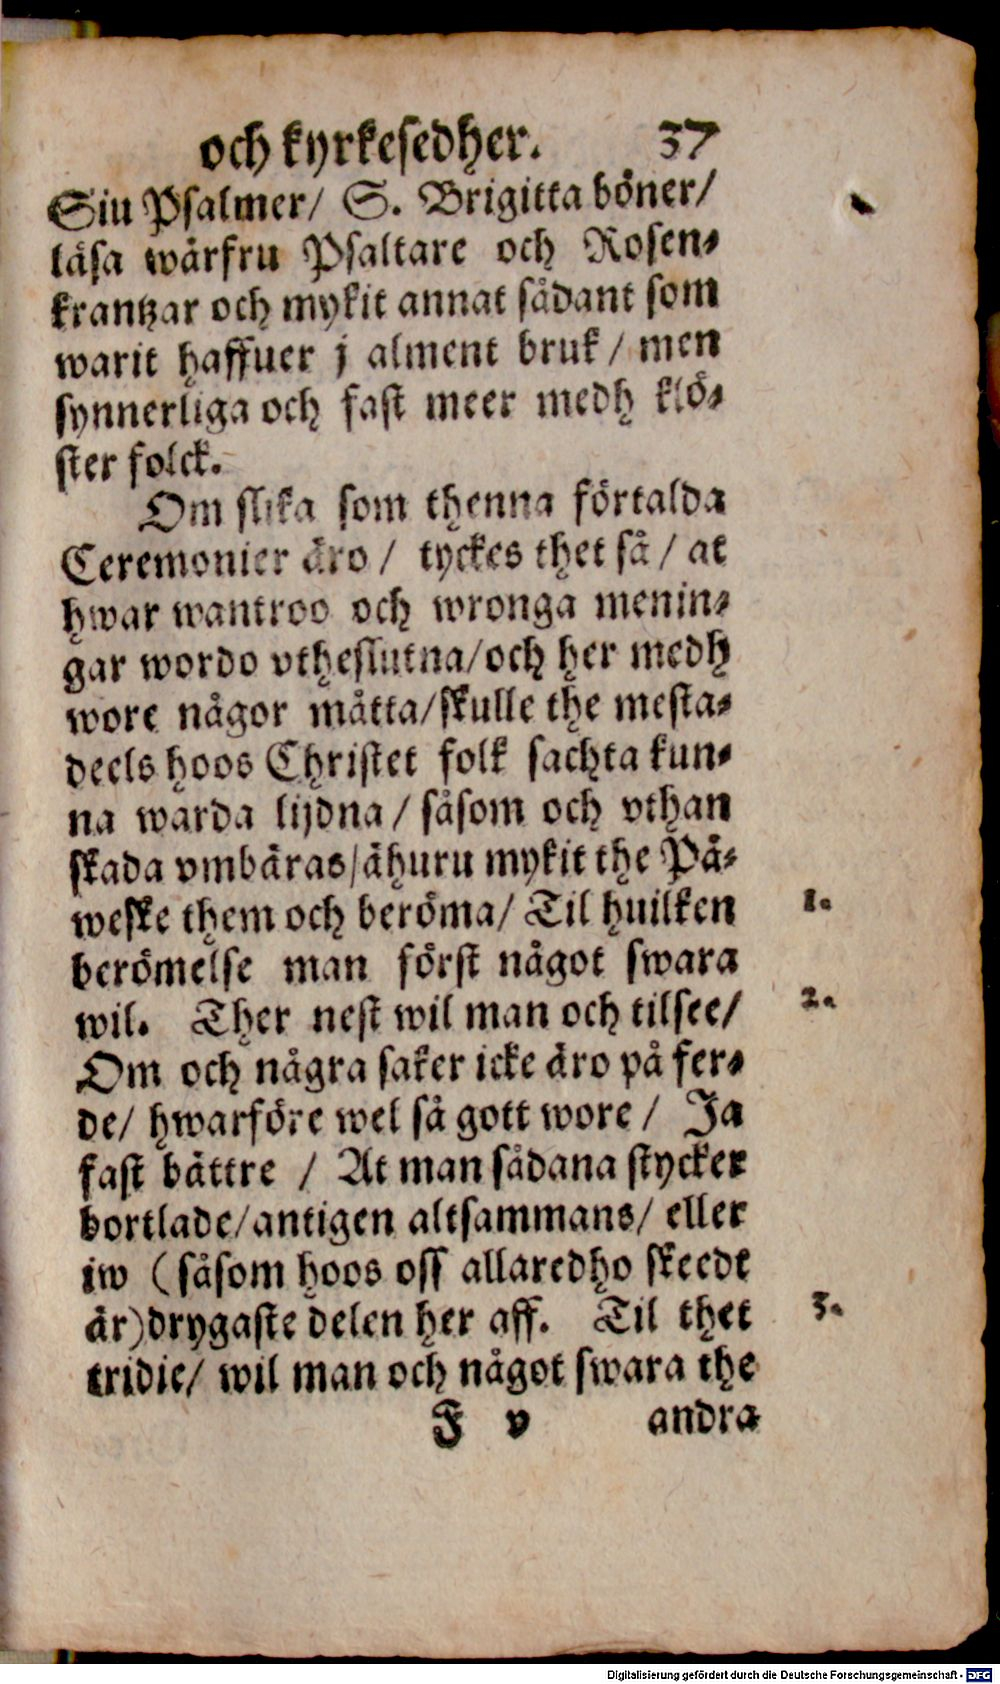 och kyrkesedher. 37
Siu Psalmer/ S. Brigitta böner/
läsa wårfru Psaltare och Rosen⸗
krantzar och mykit annat sådant som
warit haffuer j alment bruk / men
synnerliga och fast meer medh klö⸗
ster folck.
Om slika som thenna förtalda
Ceremonier äro / tyckes thet så / at
hwar wantroo och wronga menin⸗
gar wordo vtheslutna/och her medh
wore någor måtta/skulle the mesta⸗
deels hoos Christet folk sachta kun⸗
na warda lijdna / såsom och vthan
skada vmbäras/ähuru mykit the På⸗
weske them och beröma/ Til huilken
1.
berömelse man först något swara
wil. Ther nest wil man och tilsee/
2.
Om och några saker icke äro på fer⸗
de/ hwarföre wel så gott wore / Ja
fast bättre / At man sådana stycker
bortlade/antigen altsammans/ eller
iw (såsom hoos oss allaredho skeedt
är)drygaste delen her aff. Til thet
3.
tridie/ wil man och något swara the
F v andra
Digitalisierung gefördert durch die Deutsche Forschungsgemeinschaft - DFG